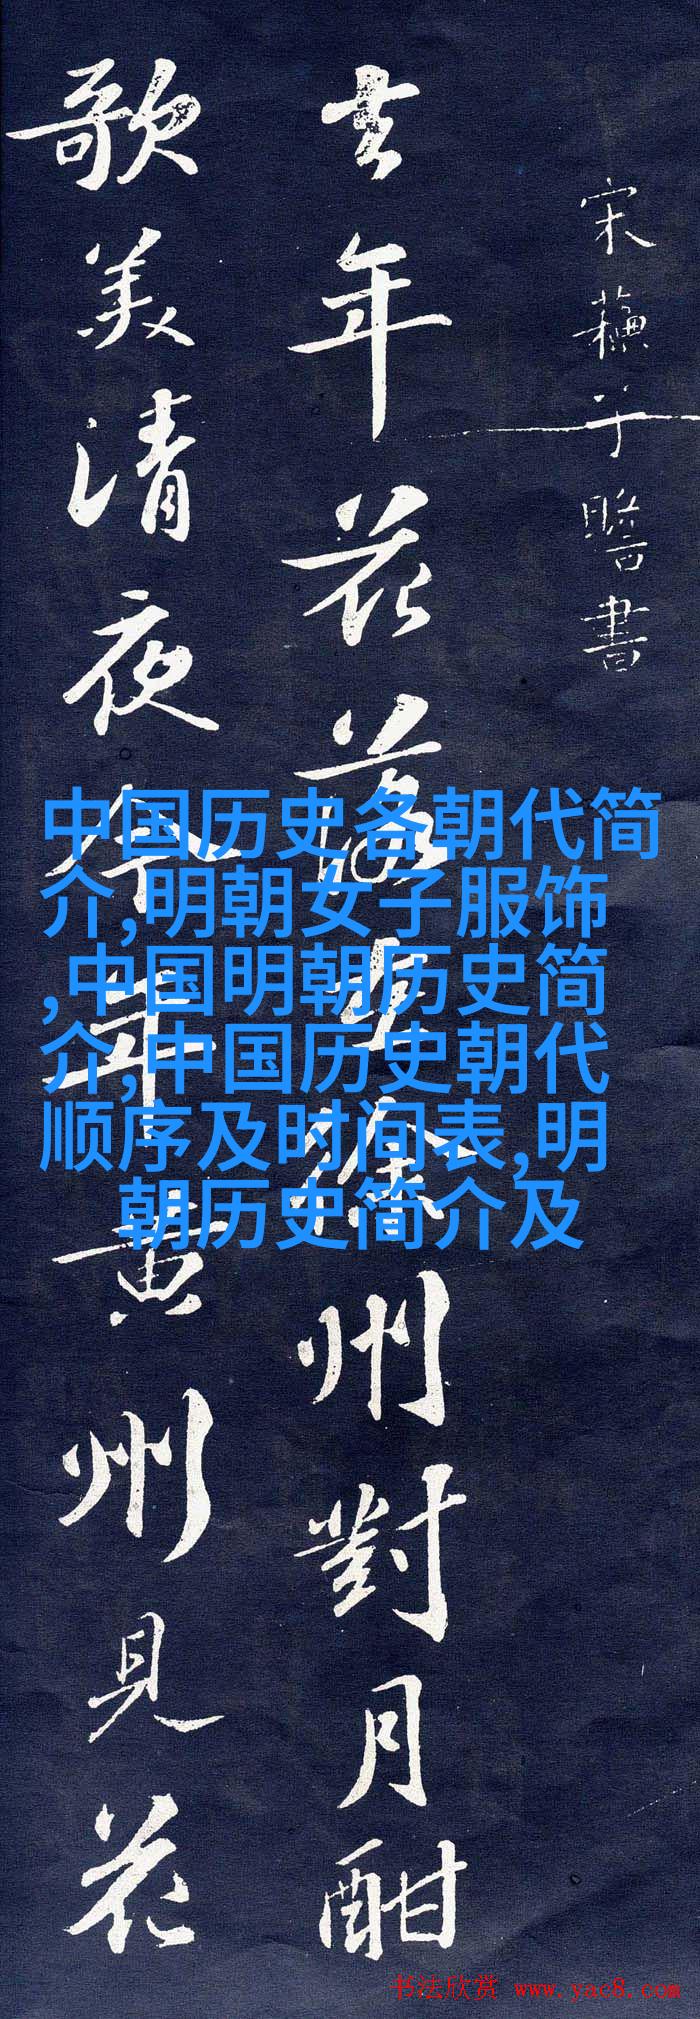 宋蘓子瞻書
去年花落在徐州對月酣
歌美清夜今年黄州見花
中国历史各朝代简
介,明朝女子服饰
,中国明朝历史简
介,中国历史朝代
顺序及时间表,明
朝历史简介及
书法欣赏 www.yac8.com